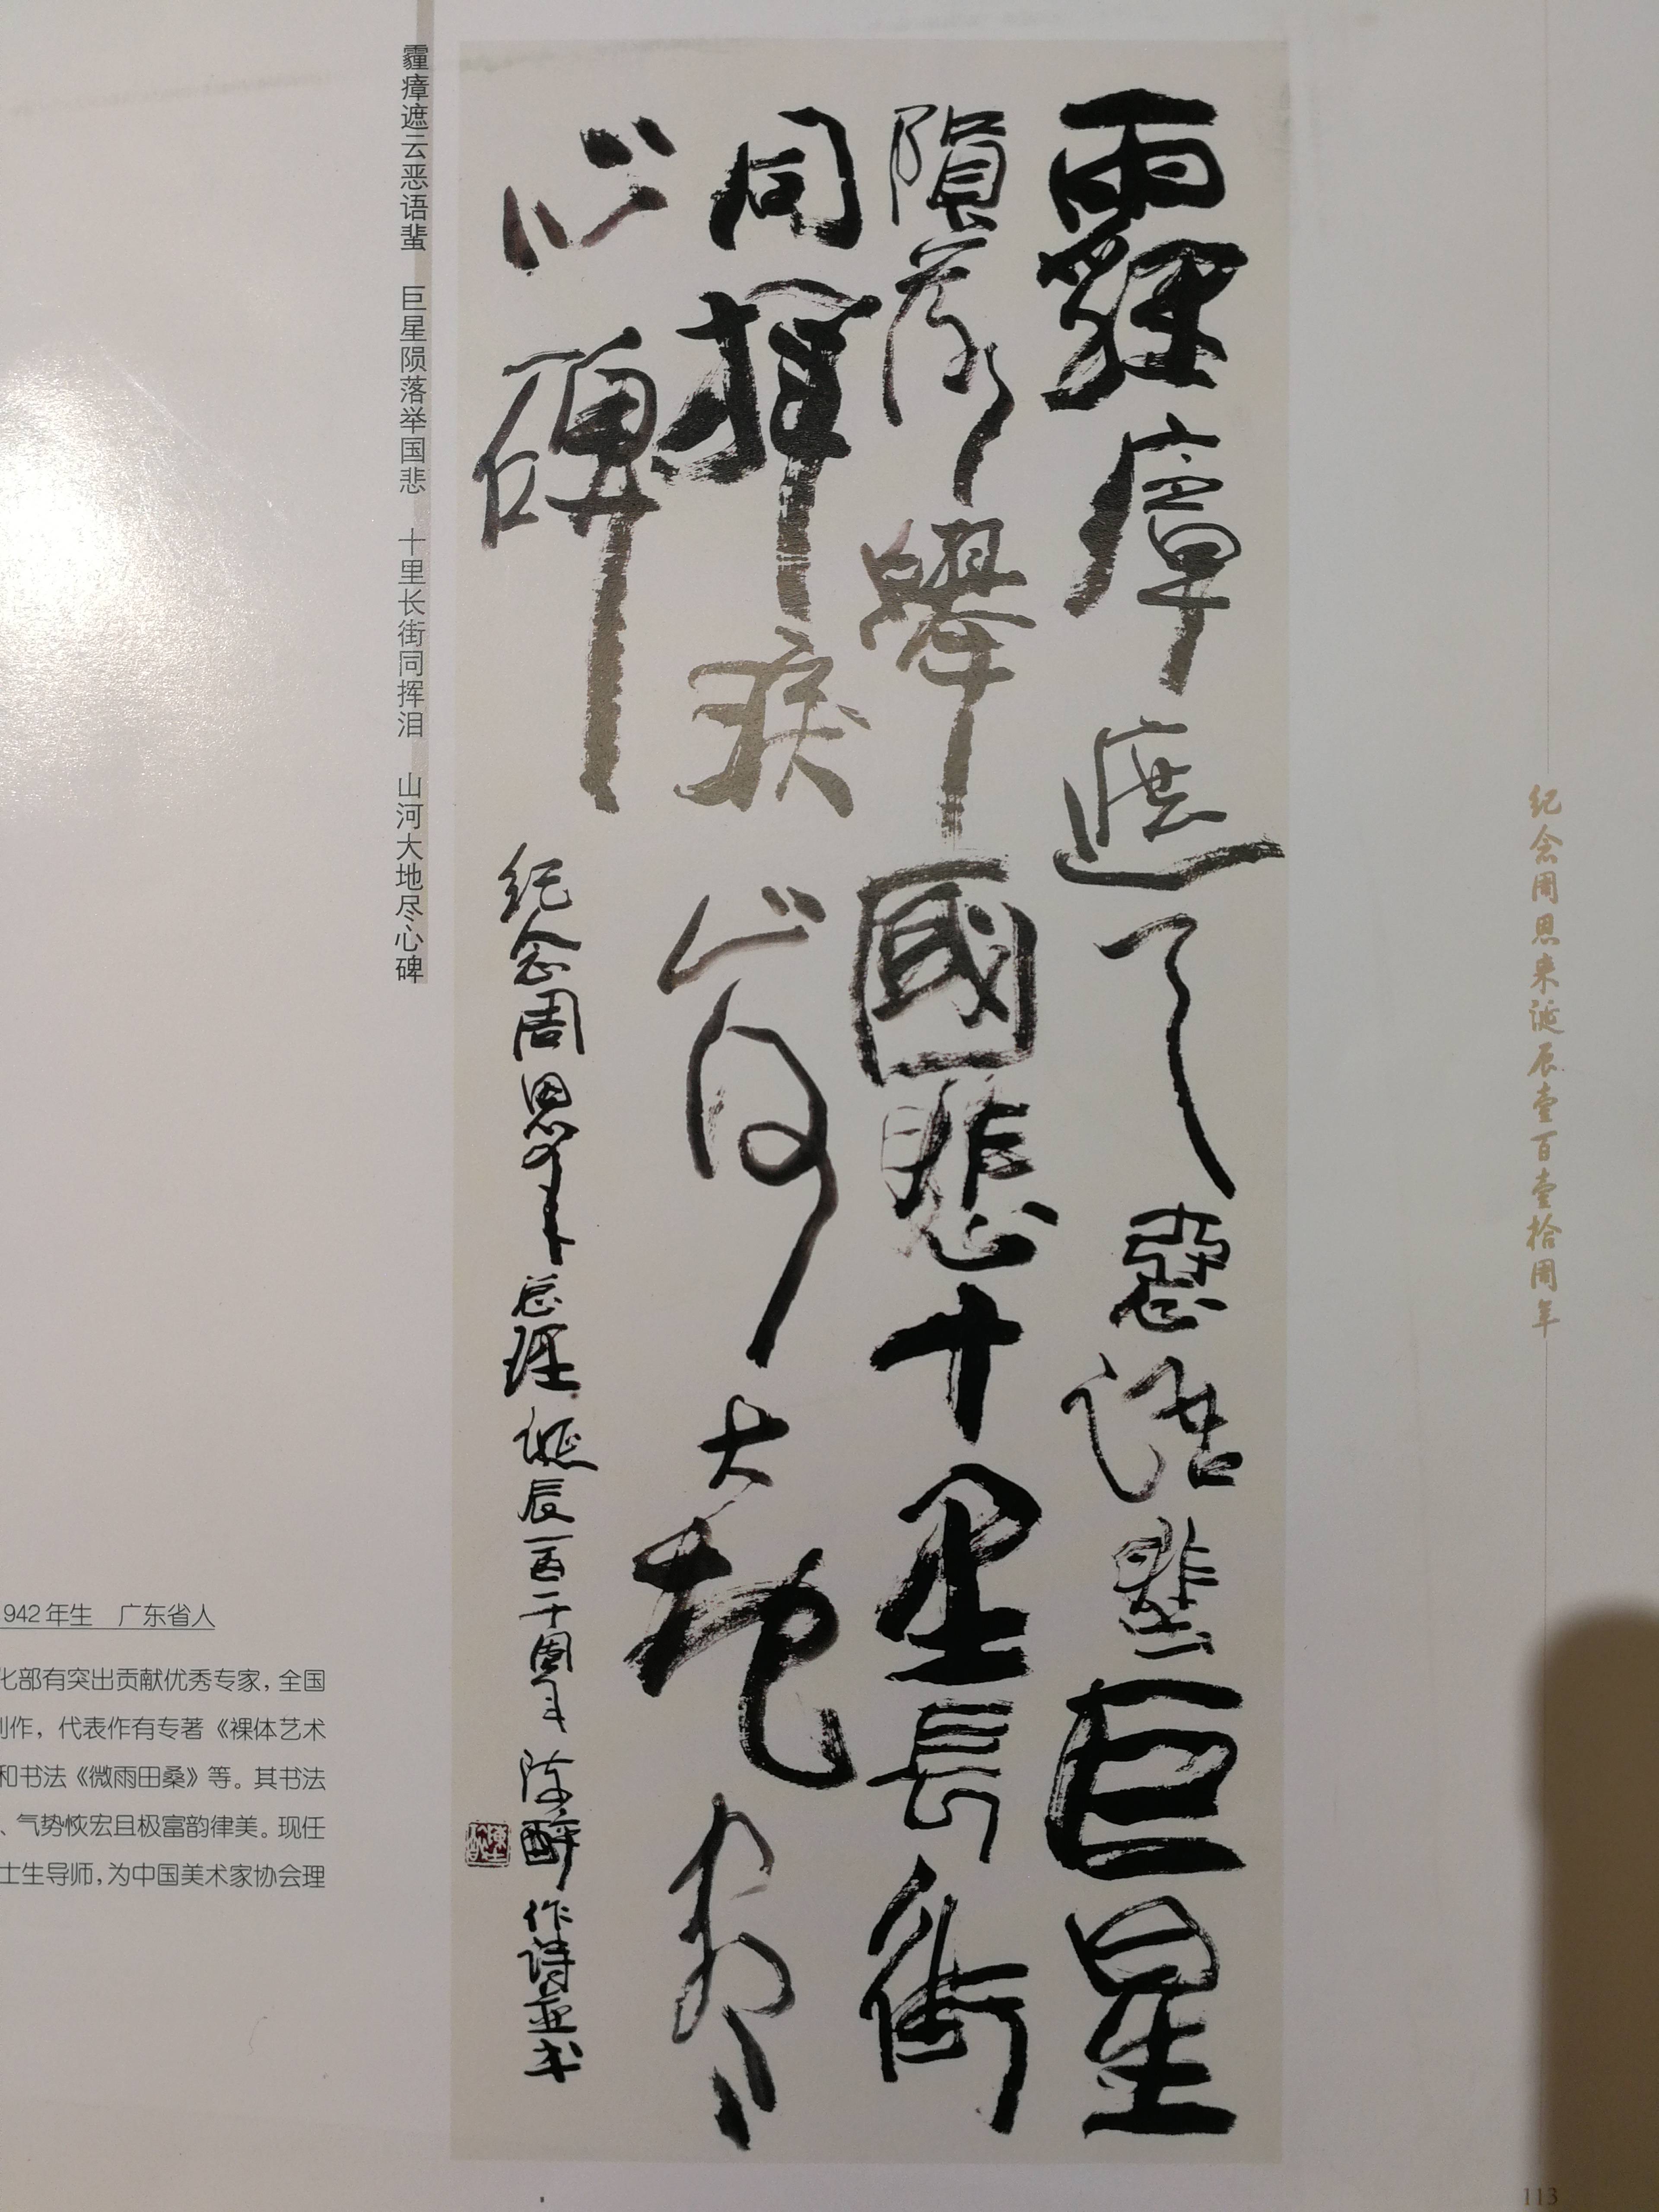 霾瘴遮云恶语蜚巨星
陨落舉國悲十里長街
同揮淚山河大地尽
心碑
纪念周恩来总理诞辰一百一十周年 陈醉作诗并书
霾瘴遮云恶语蜚 巨星陨落举国悲 十里长街同挥泪 山河大地尽心碑
942年生 广东省人
化部有突出贡献优秀专家，全国
创作，代表作有专著《裸体艺术
和书法《微雨田桑》等。其书法
、气势恢宏且极富韵律美。现任
士生导师，为中国美术家协会理
纪念周恩来诞辰壹百壹拾周年
113